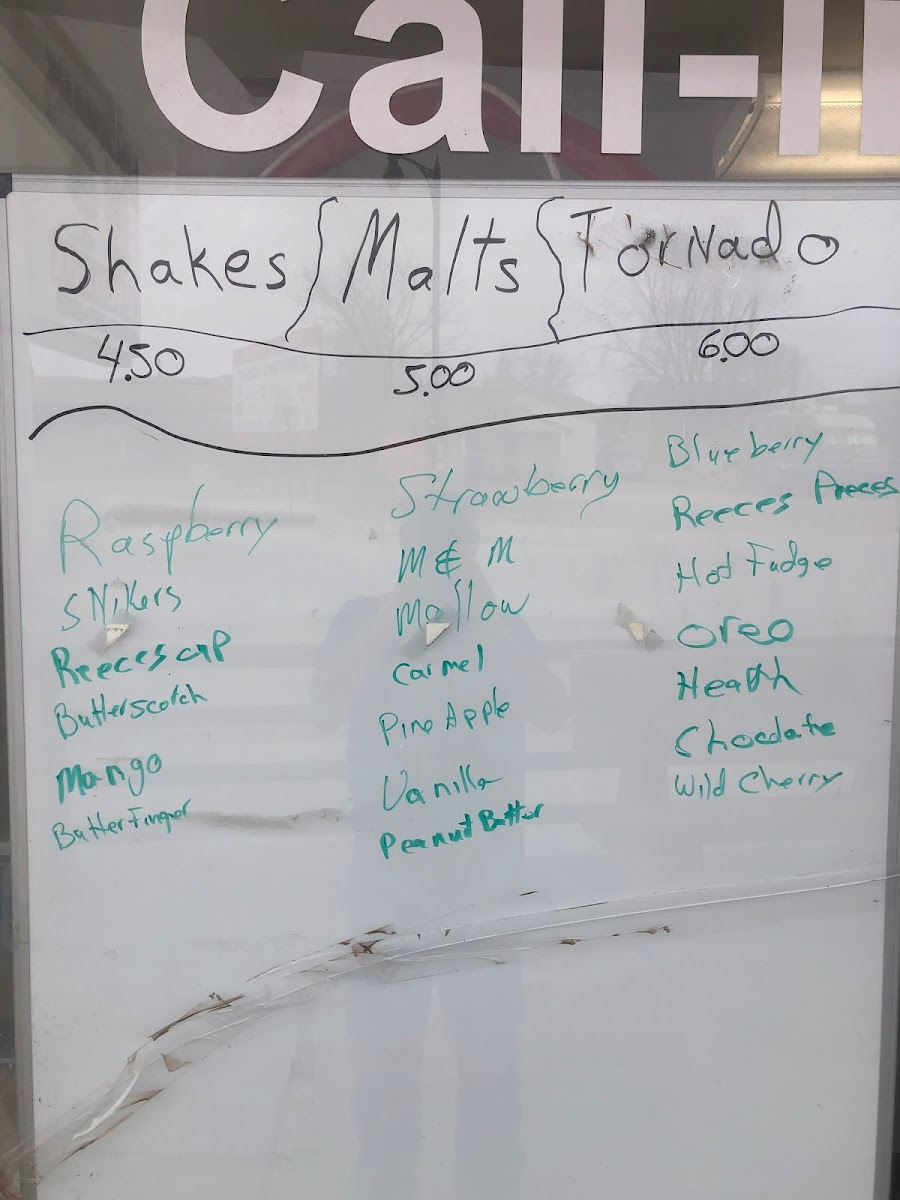 Call-I
Shakes Malts Tornado
4.50 5.00 6.00
Raspberry
SNikers
Reeces cup
Butterscotch
Mango
Butterfinger
Strawberry
M & M
Mallow
Carmel
Pine Apple
Vanilla
Peanut Butter
Blueberry
Reeces Pieces
Hot Fudge
Oreo
Heath
Choclate
Wild Cherry